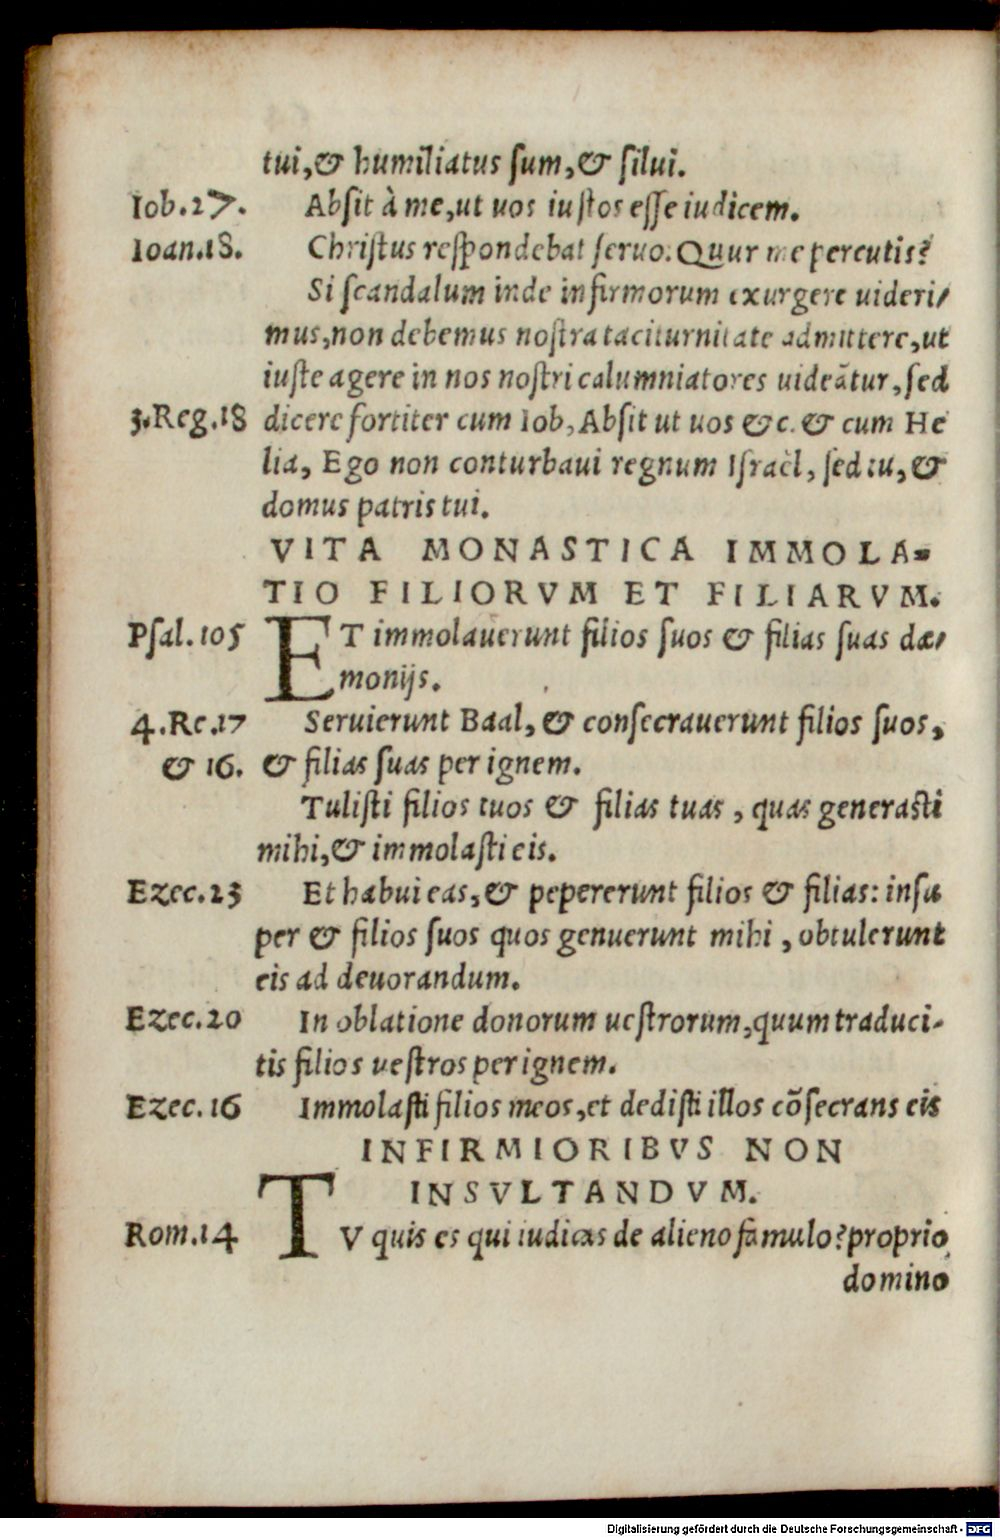 tui,& humiliatus ſum,& ſilui.
Iob.27. Abſit à me,ut uos iuſtos eſſe iudicem.
Ioan.18. Chriſtus reſpondebat ſeruo: Quur me percutis?
Si ſcandalum inde infirmorum exurgere uideri/
mus,non debemus noſtra taciturnitate admittere,ut
iuſte agere in nos noſtri calumniatores uideãtur,ſed
3.Reg.18 dicere fortiter cum Iob,Abſit ut uos &c. & cum He
lia, Ego non conturbaui regnum Iſraèl, ſed tu, &
domus patris tui.
VITA MONASTICA IMMOLA-
TIO FILIORVM ET FILIARVM.
Pſal.105 ET immolauerunt filios ſuos & filias ſuas dæ/
monijs.
4.Re.17 Seruierunt Baal, & conſecrauerunt filios ſuos,
& 16. & filias ſuas per ignem.
Tuliſti filios tuos & filias tuas, quas generaſti
mihi,& immolaſti eis.
Ezec.23 Et habui eas,& pepererunt filios & filias: inſu
per & filios ſuos quos genuerunt mihi, obtulerunt
eis ad deuorandum.
Ezec.20 In oblatione donorum ueſtrorum,quum traduci-
tis filios veſtros per ignem.
Ezec.16 Immolaſti filios meos,et dediſti illos cõſecrans eis
INFIRMIORIBVS NON
INSVLTANDVM.
Rom.14 TV quis es qui iudicas de alieno famulo?proprio
domino
Digitalisierung gefördert durch die Deutsche Forschungsgemeinschaft - DFG